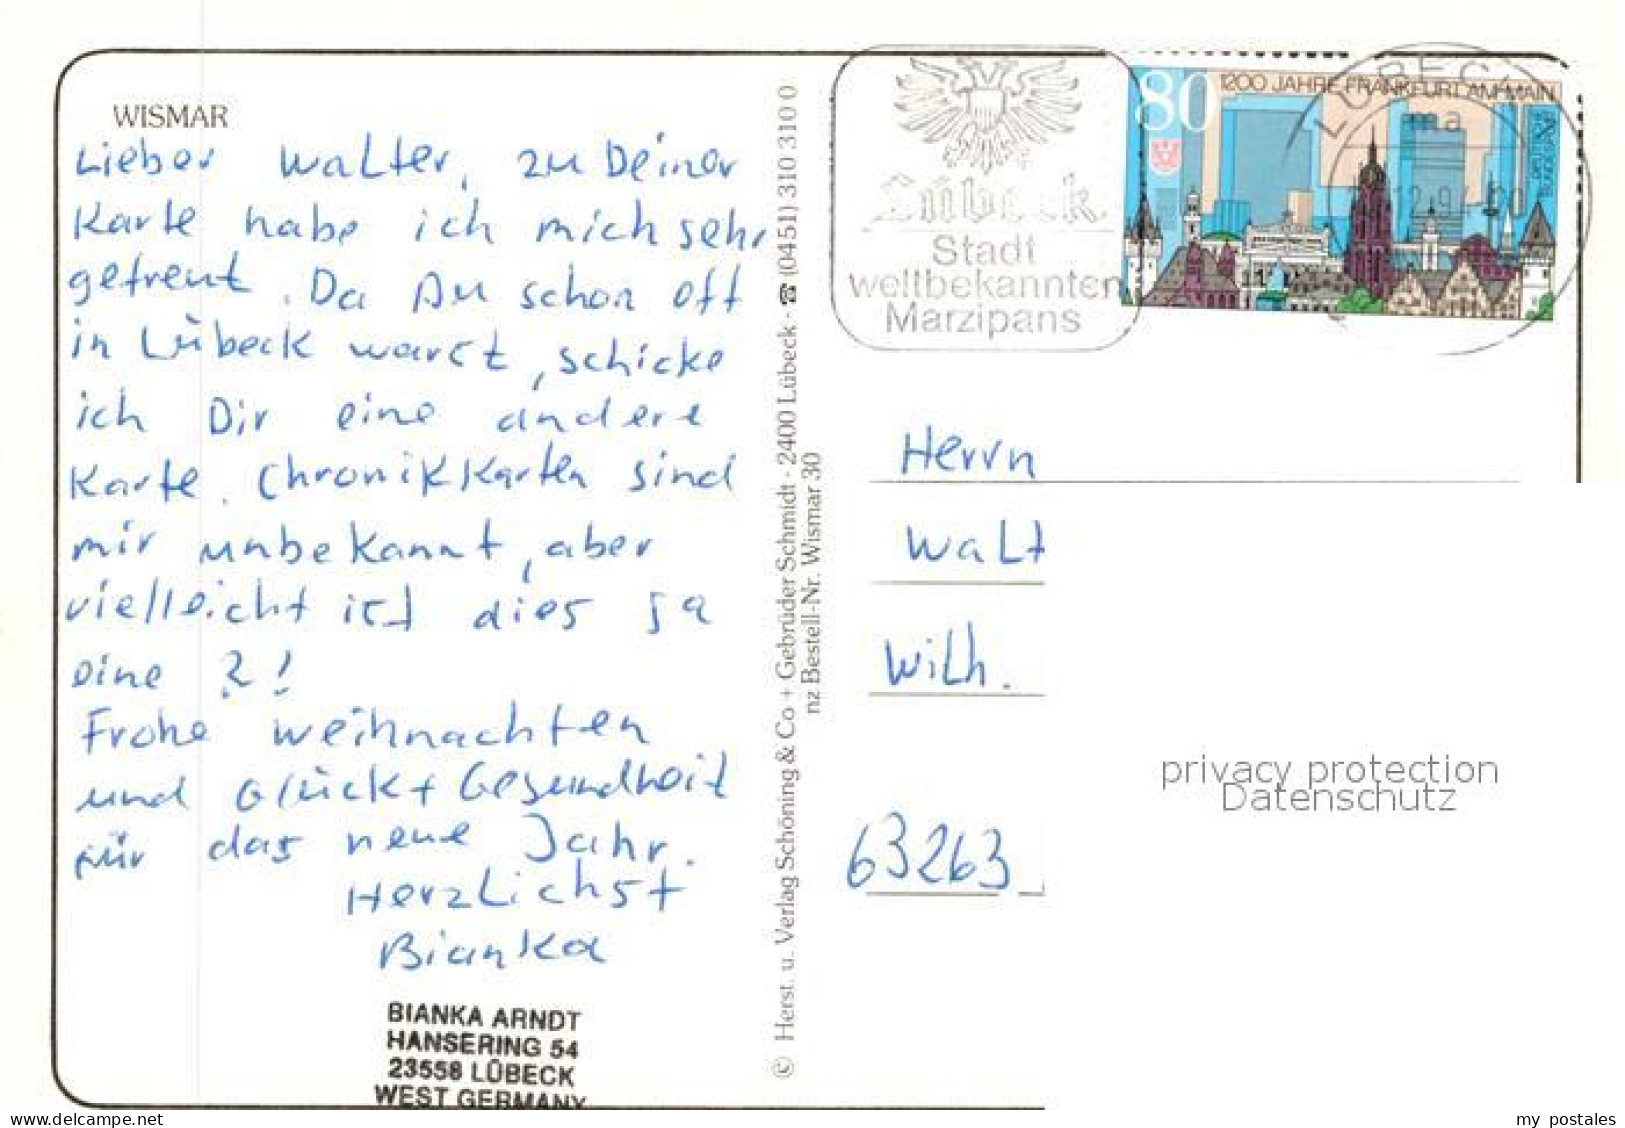 WISMAR
Lieber Walter, zu Deiner
Karte habe ich mich sehr
gefreut. Da Du schon oft
in Lübeck warst, schicke
ich Dir eine andere
Karte. Chronikkarten sind
mir unbekannt, aber
vielleicht ist dies ja
eine ?!
Frohe Weihnachten
und Glück + Gesundheit
für das neue Jahr.
Herzlichst
Bianka
BIANKA ARNDT
HANSERING 54
23558 LÜBECK
WEST GERMANY
© Herst. u. Verlag Schöning & Co + Gebrüder Schmidt · 2400 Lübeck · ☎ (0451) 310 310 0
nz Bestell-Nr. Wismar 30
Lübeck
Stadt
weltbekannten
Marzipans
80
1200 JAHRE FRANKFURT AM MAIN
DEUTSCHE
BUNDESPOST
LÜBECK
ma
Herrn
Walt
Wilh.
63263
privacy protection
Datenschutz
delcampe.net
my_postales